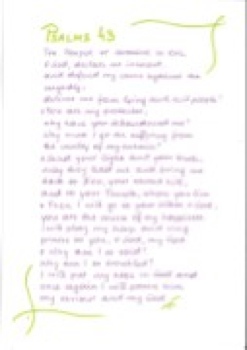 PSALMS 43
The Prayer of someone in Exile
O God, declare me innocent
and defend my cause against the
ungodly;
deliver me from lying and evil people!
You are my protector;
why have you abandoned me?
Why must I go on suffering from
the cruelty of my enemies?
Send your light and your truth;
may they lead me and bring me
back to Zion, your sacred hill,
and to your Temple, where you live
Then I will go to your altar, O God;
you are the source of my happiness.
I will play my harp and sing
praise to you, O God, my God
Why am I so sad?
Why am I so troubled?
I will put my hope in God and
once again I will praise him,
my savior and my God